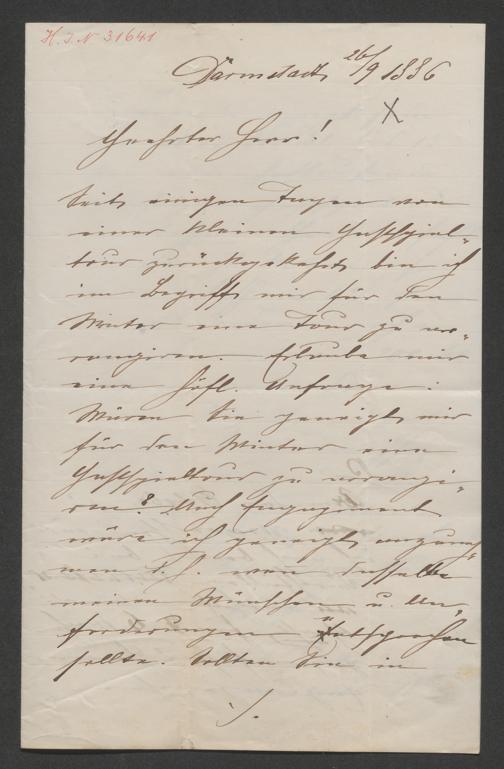 H. I. N 31641
Darmstadt, 26/9 1886
X
Geehrter Herr!
Seit einigen Tagen von
einer kleinen Gastspiel-
tour zurückgekehrt bin ich
im Begriff mir für den
Winter eine Tour zu ar-
rangiren. Erlaube mir
eine höfl. Anfrage:
Wären Sie geneigt mir
für den Winter eine
Gastspieltour zu arrangi-
ren? Auch Engagement
wäre ich geneigt anzuneh-
men d.h. wenn dasselbe
meinen Wünschen u. An-
forderungen entsprechen
sollte. Sollten Sie in
./.